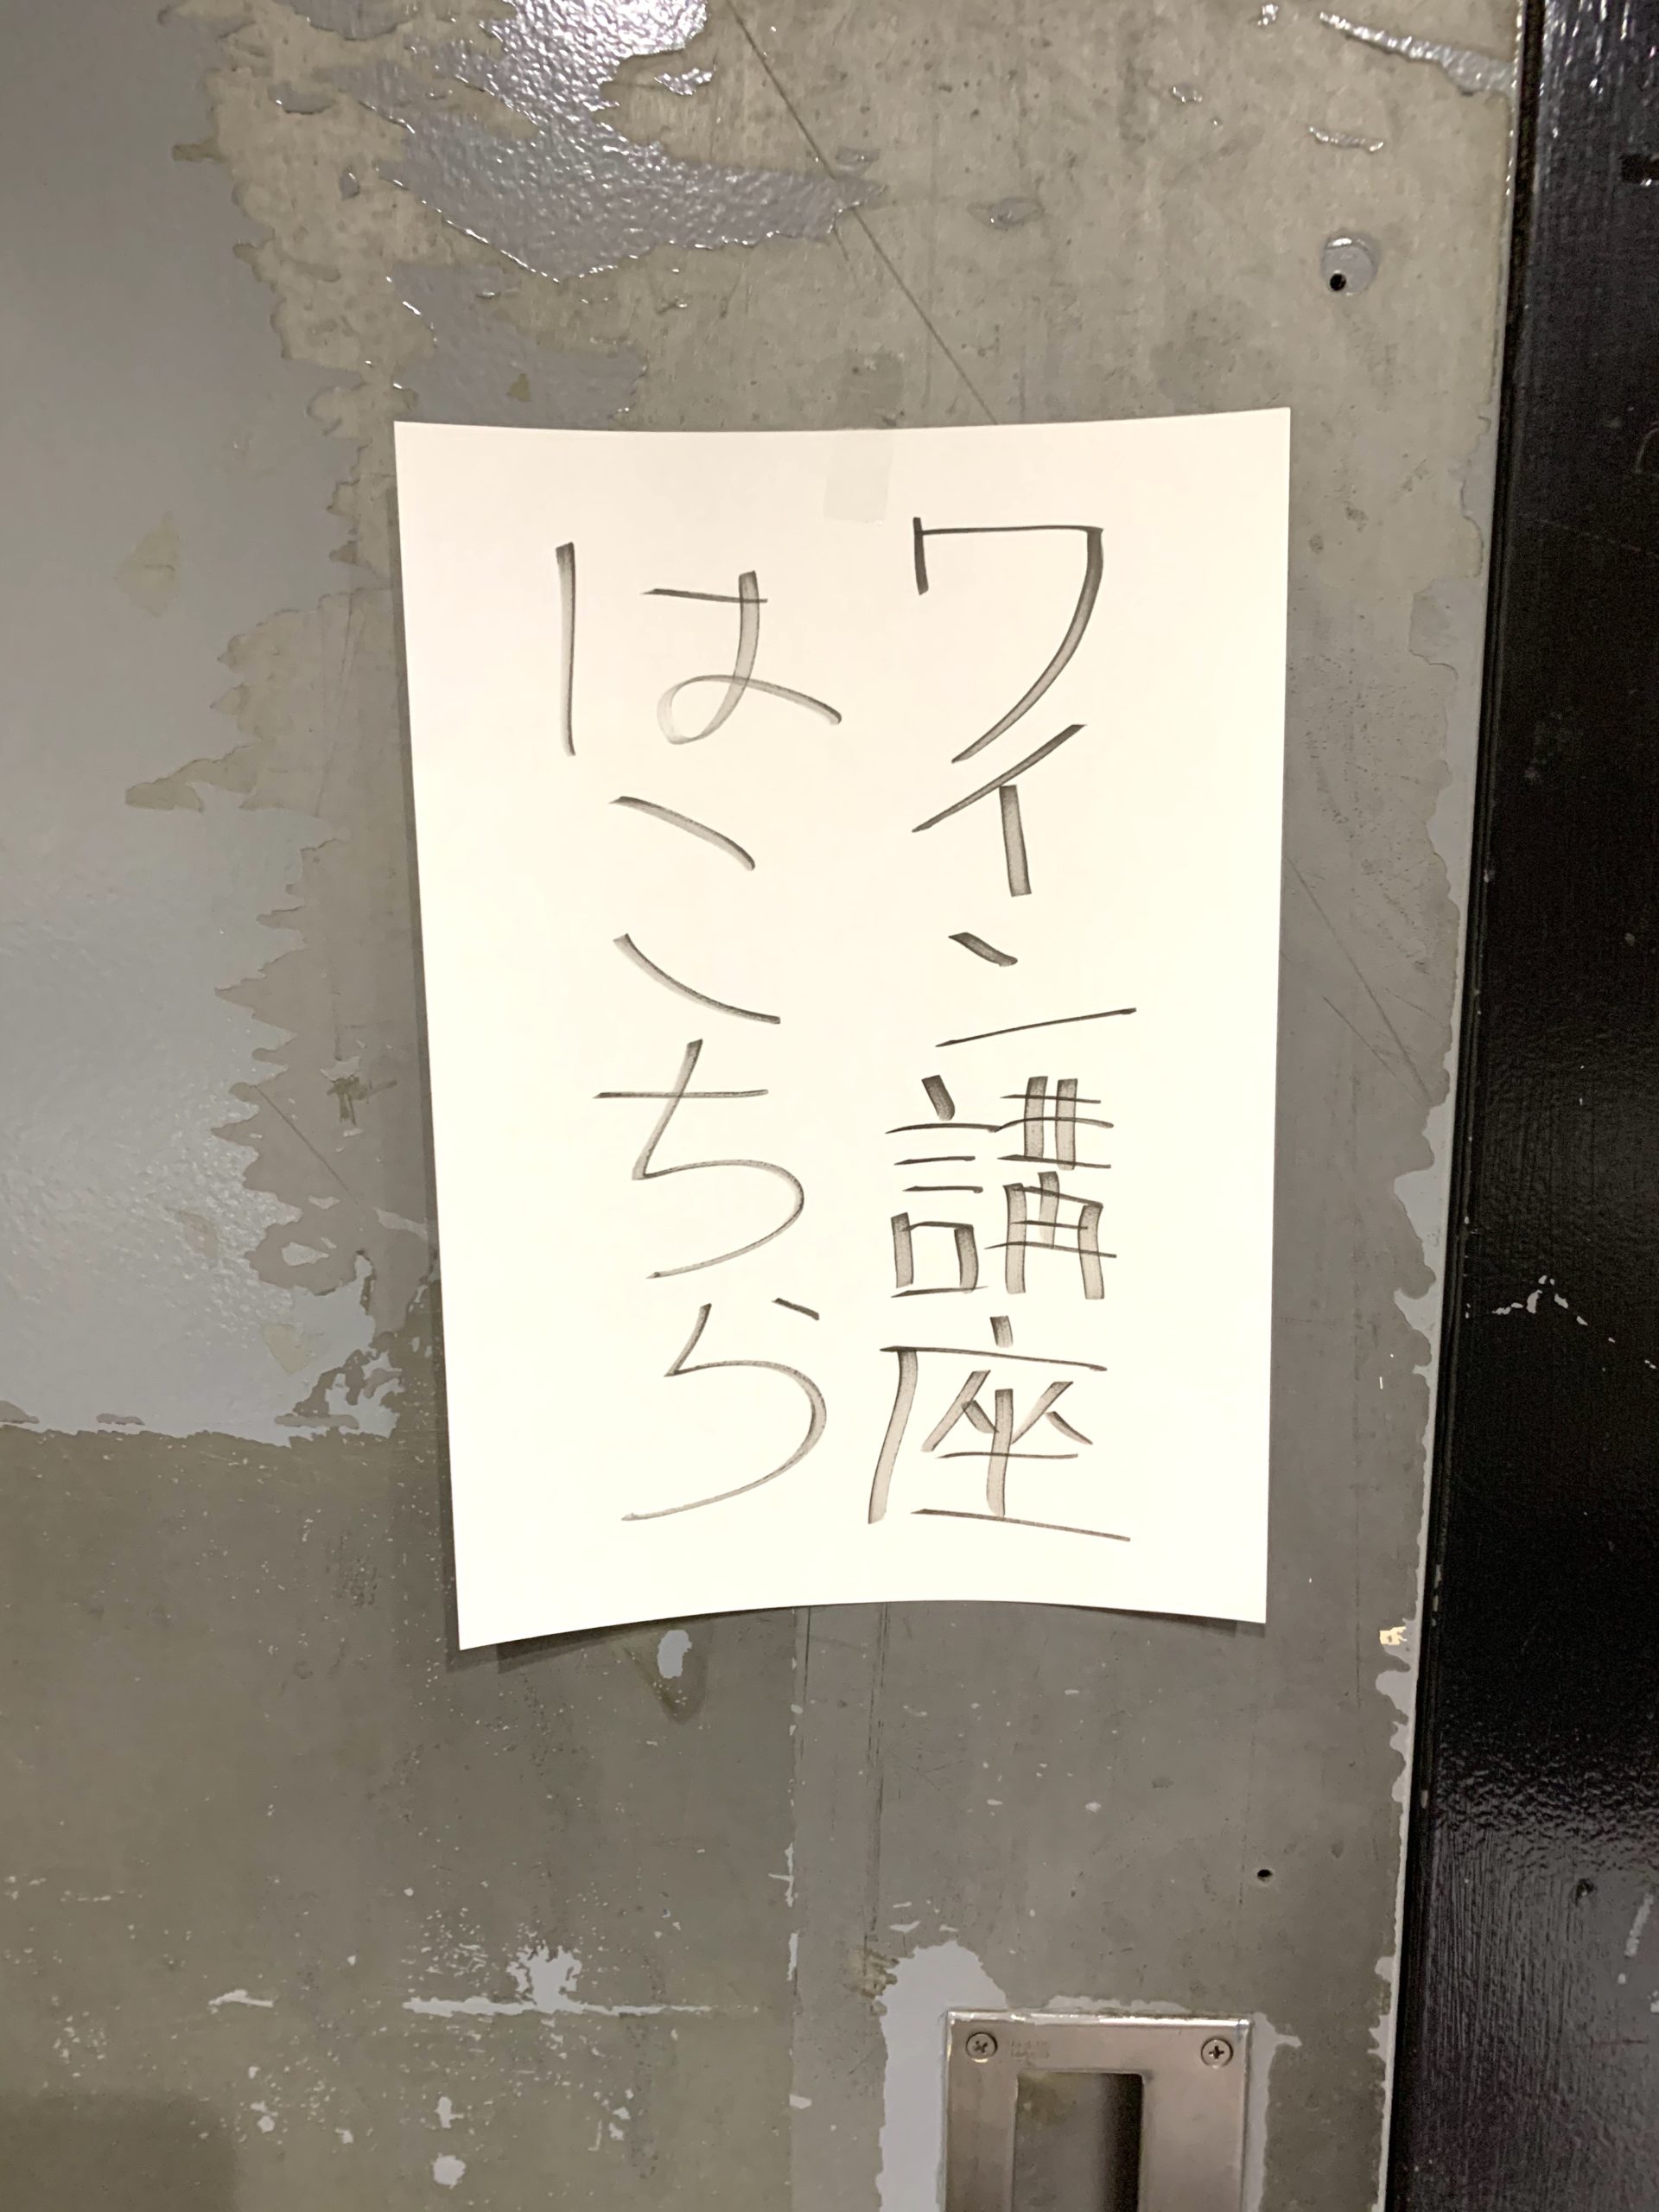 ワイン講座
はこちら